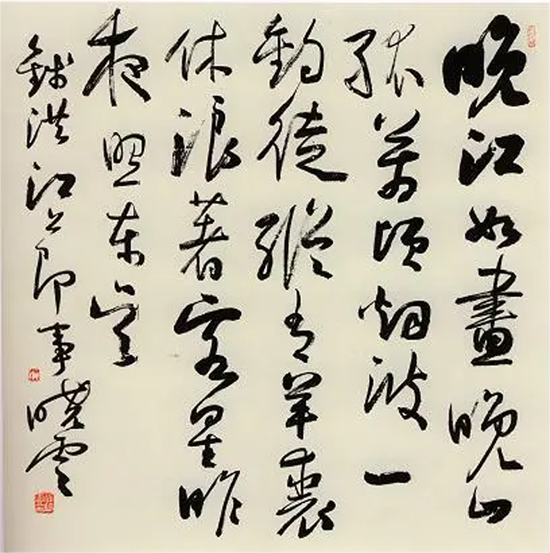 晚江如畫晚山
孤萬頃烟波一
釣徒縱有羊裘
休浪著客星昨
夜照東吳
錢洪江上即事曉雲